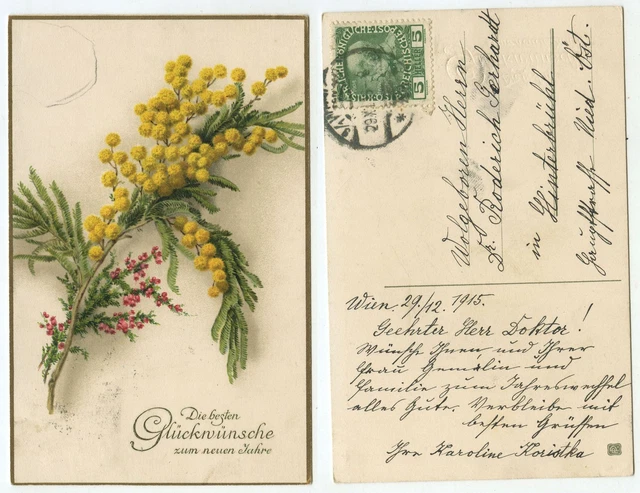 Die besten
Glückwünsche
zum neuen Jahre
5
5
Wolgeboren Herrn
Dr. Roderich Gerhardt
in Hinterbrühl
Nied. Öst.
Wien, 29./12. 1915.
Geehrter Herr Doktor!
Wünsche Ihnen und Ihrer
Frau Gemalin und
Familie zum Jahreswechsel
alles Gute. Verbleibe mit
besten Grüssen
Ihre Karoline Koristka